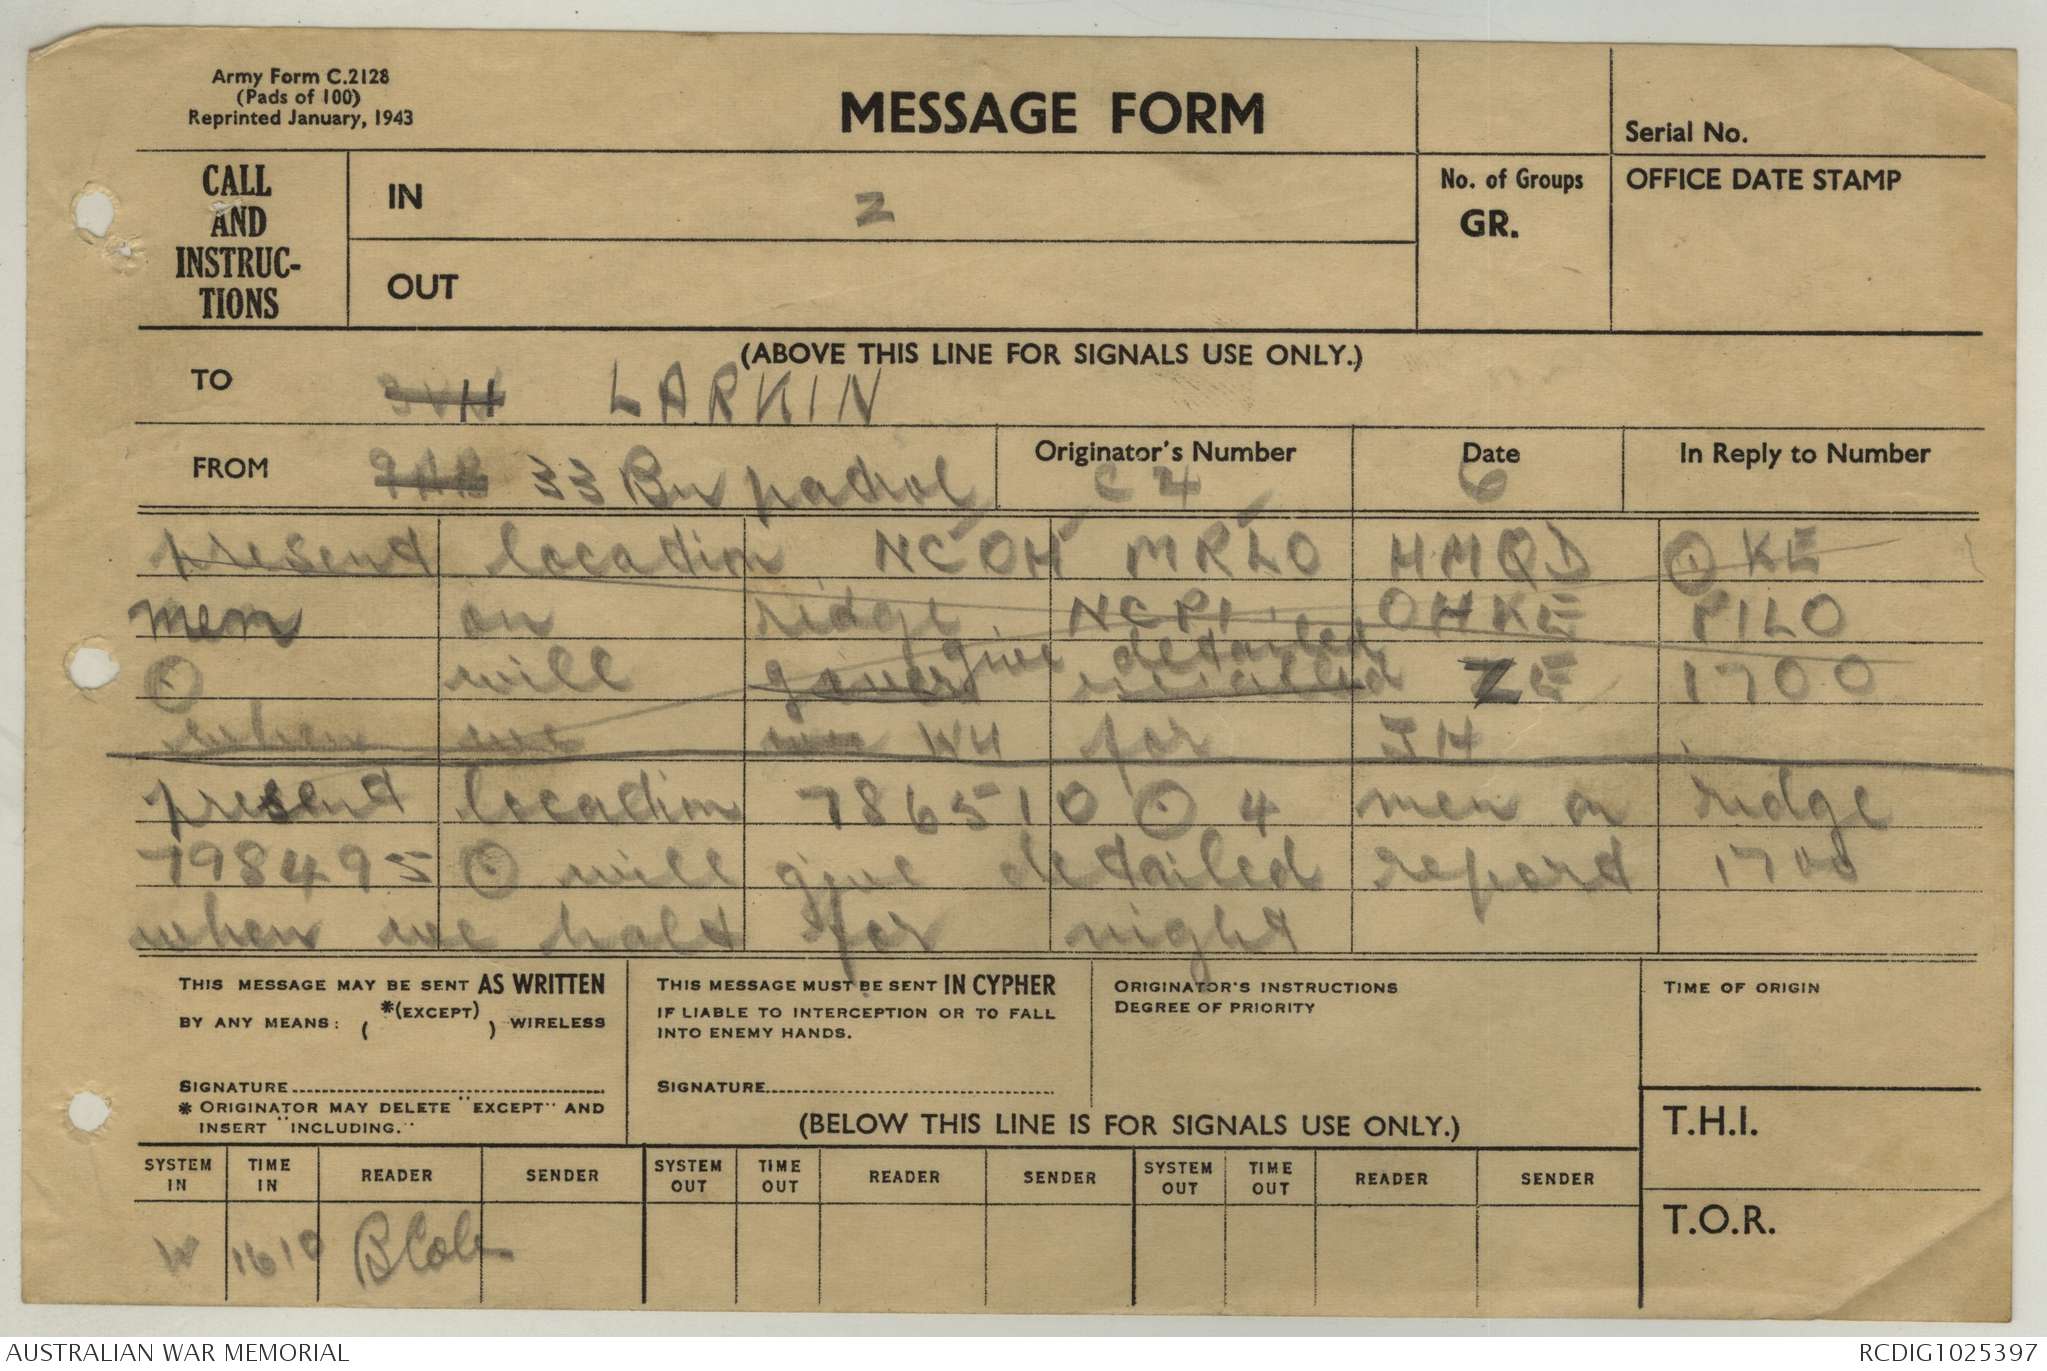 Army Form C.2128
(Pads of 100)
Reprinted January, 1943
MESSAGE FORM
Serial No.
CALL AND INSTRUC- TIONS
IN
z
OUT
No. of Groups
GR.
OFFICE DATE STAMP
(ABOVE THIS LINE FOR SIGNALS USE ONLY.)
TO LARKIN
FROM 33 Bn patrol
Originator's Number C 4
Date 6
In Reply to Number
present location NCOH MRLO HMQD ⊙ KE
men on ridge NCPI OHKE PILO
⊙ will give detailed ZE 1700
when we WH for JH
present location 786510 ⊙ 4 men on ridge
798495 ⊙ will give detailed report 1700
when we halt for night
THIS MESSAGE MAY BE SENT AS WRITTEN
BY ANY MEANS: ( *(EXCEPT) ) WIRELESS
SIGNATURE
* ORIGINATOR MAY DELETE "EXCEPT" AND
INSERT "INCLUDING."
THIS MESSAGE MUST BE SENT IN CYPHER
IF LIABLE TO INTERCEPTION OR TO FALL
INTO ENEMY HANDS.
SIGNATURE
ORIGINATOR'S INSTRUCTIONS
DEGREE OF PRIORITY
TIME OF ORIGIN
(BELOW THIS LINE IS FOR SIGNALS USE ONLY.)
T.H.I.
T.O.R.
SYSTEM IN TIME IN READER SENDER SYSTEM OUT TIME OUT READER SENDER SYSTEM OUT TIME OUT READER SENDER
W 1610
AUSTRALIAN WAR MEMORIAL
RCDIG1025397